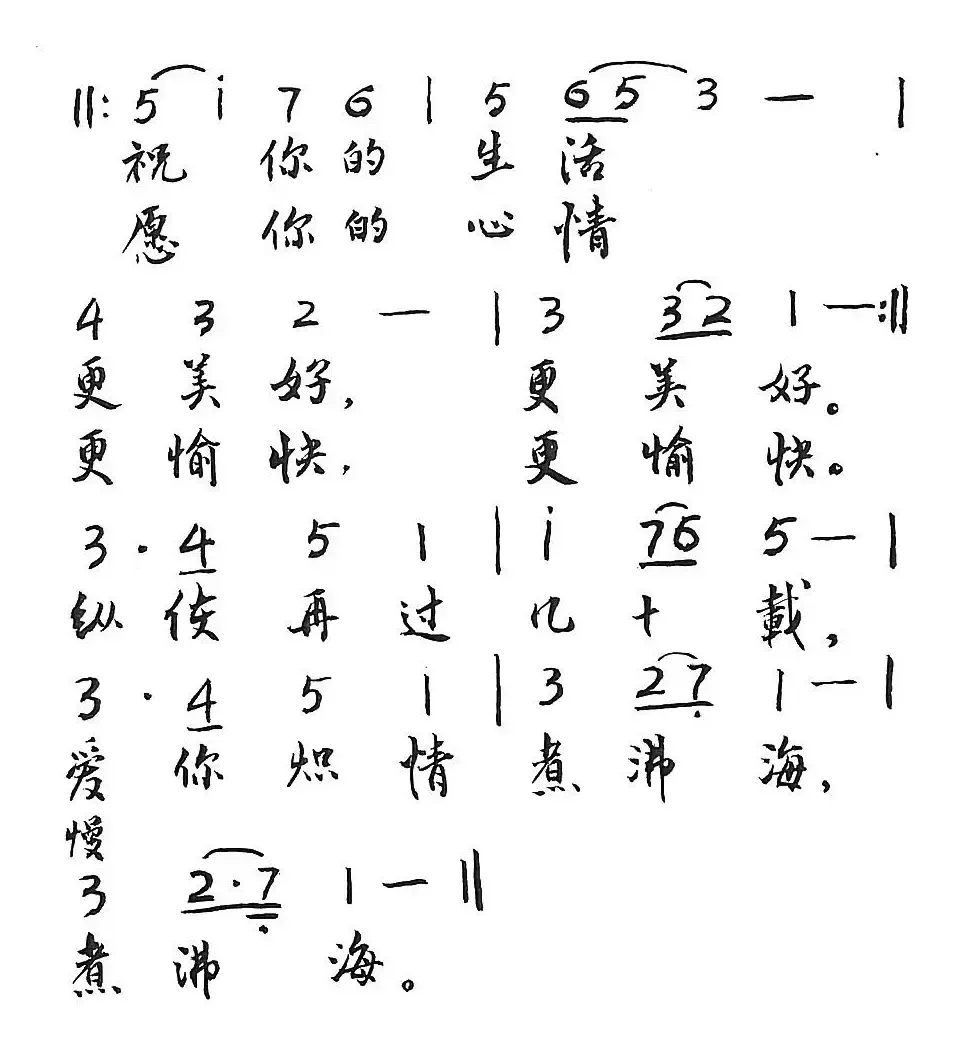 ‖: 5 i 7 6 | 5 6 5 3 — |
祝 你 的 生 活
愿 你 的 心 情
4 3 2 — | 3 3 2 1 — :‖
更 美 好, 更 美 好。
更 愉 快, 更 愉 快。
3 · 4 5 1 | i 7 6 5 — |
纵 使 再 过 几 十 载,
3 · 4 5 1 | 3 2 7 1 — |
爱 你 炽 情 煮 沸 海,
慢
3 2 · 7 1 — ‖
煮 沸 海。